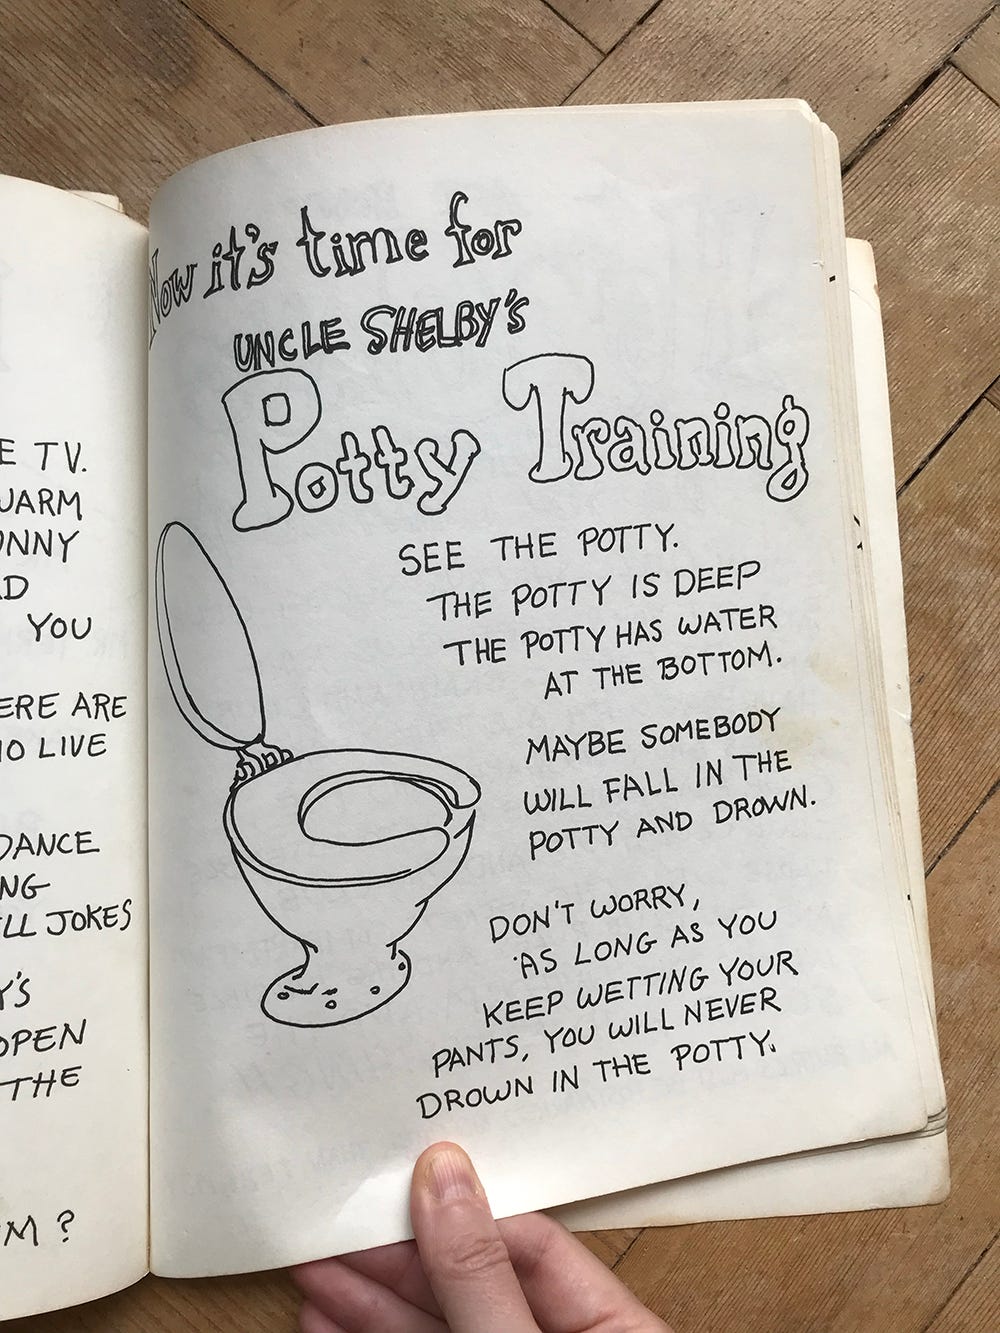 E TV.
NNY
YOU
ERE ARE
LIVE
DANCE
NG
LL JOKES
Y'S
OPEN
THE
M ?
Now it's time for
UNCLE SHELBY'S
Potty Training
SEE THE POTTY.
THE POTTY IS DEEP
THE POTTY HAS WATER
AT THE BOTTOM.
MAYBE SOMEBODY
WILL FALL IN THE
POTTY AND DROWN.
DON'T WORRY,
AS LONG AS YOU
KEEP WETTING YOUR
PANTS, YOU WILL NEVER
DROWN IN THE POTTY.